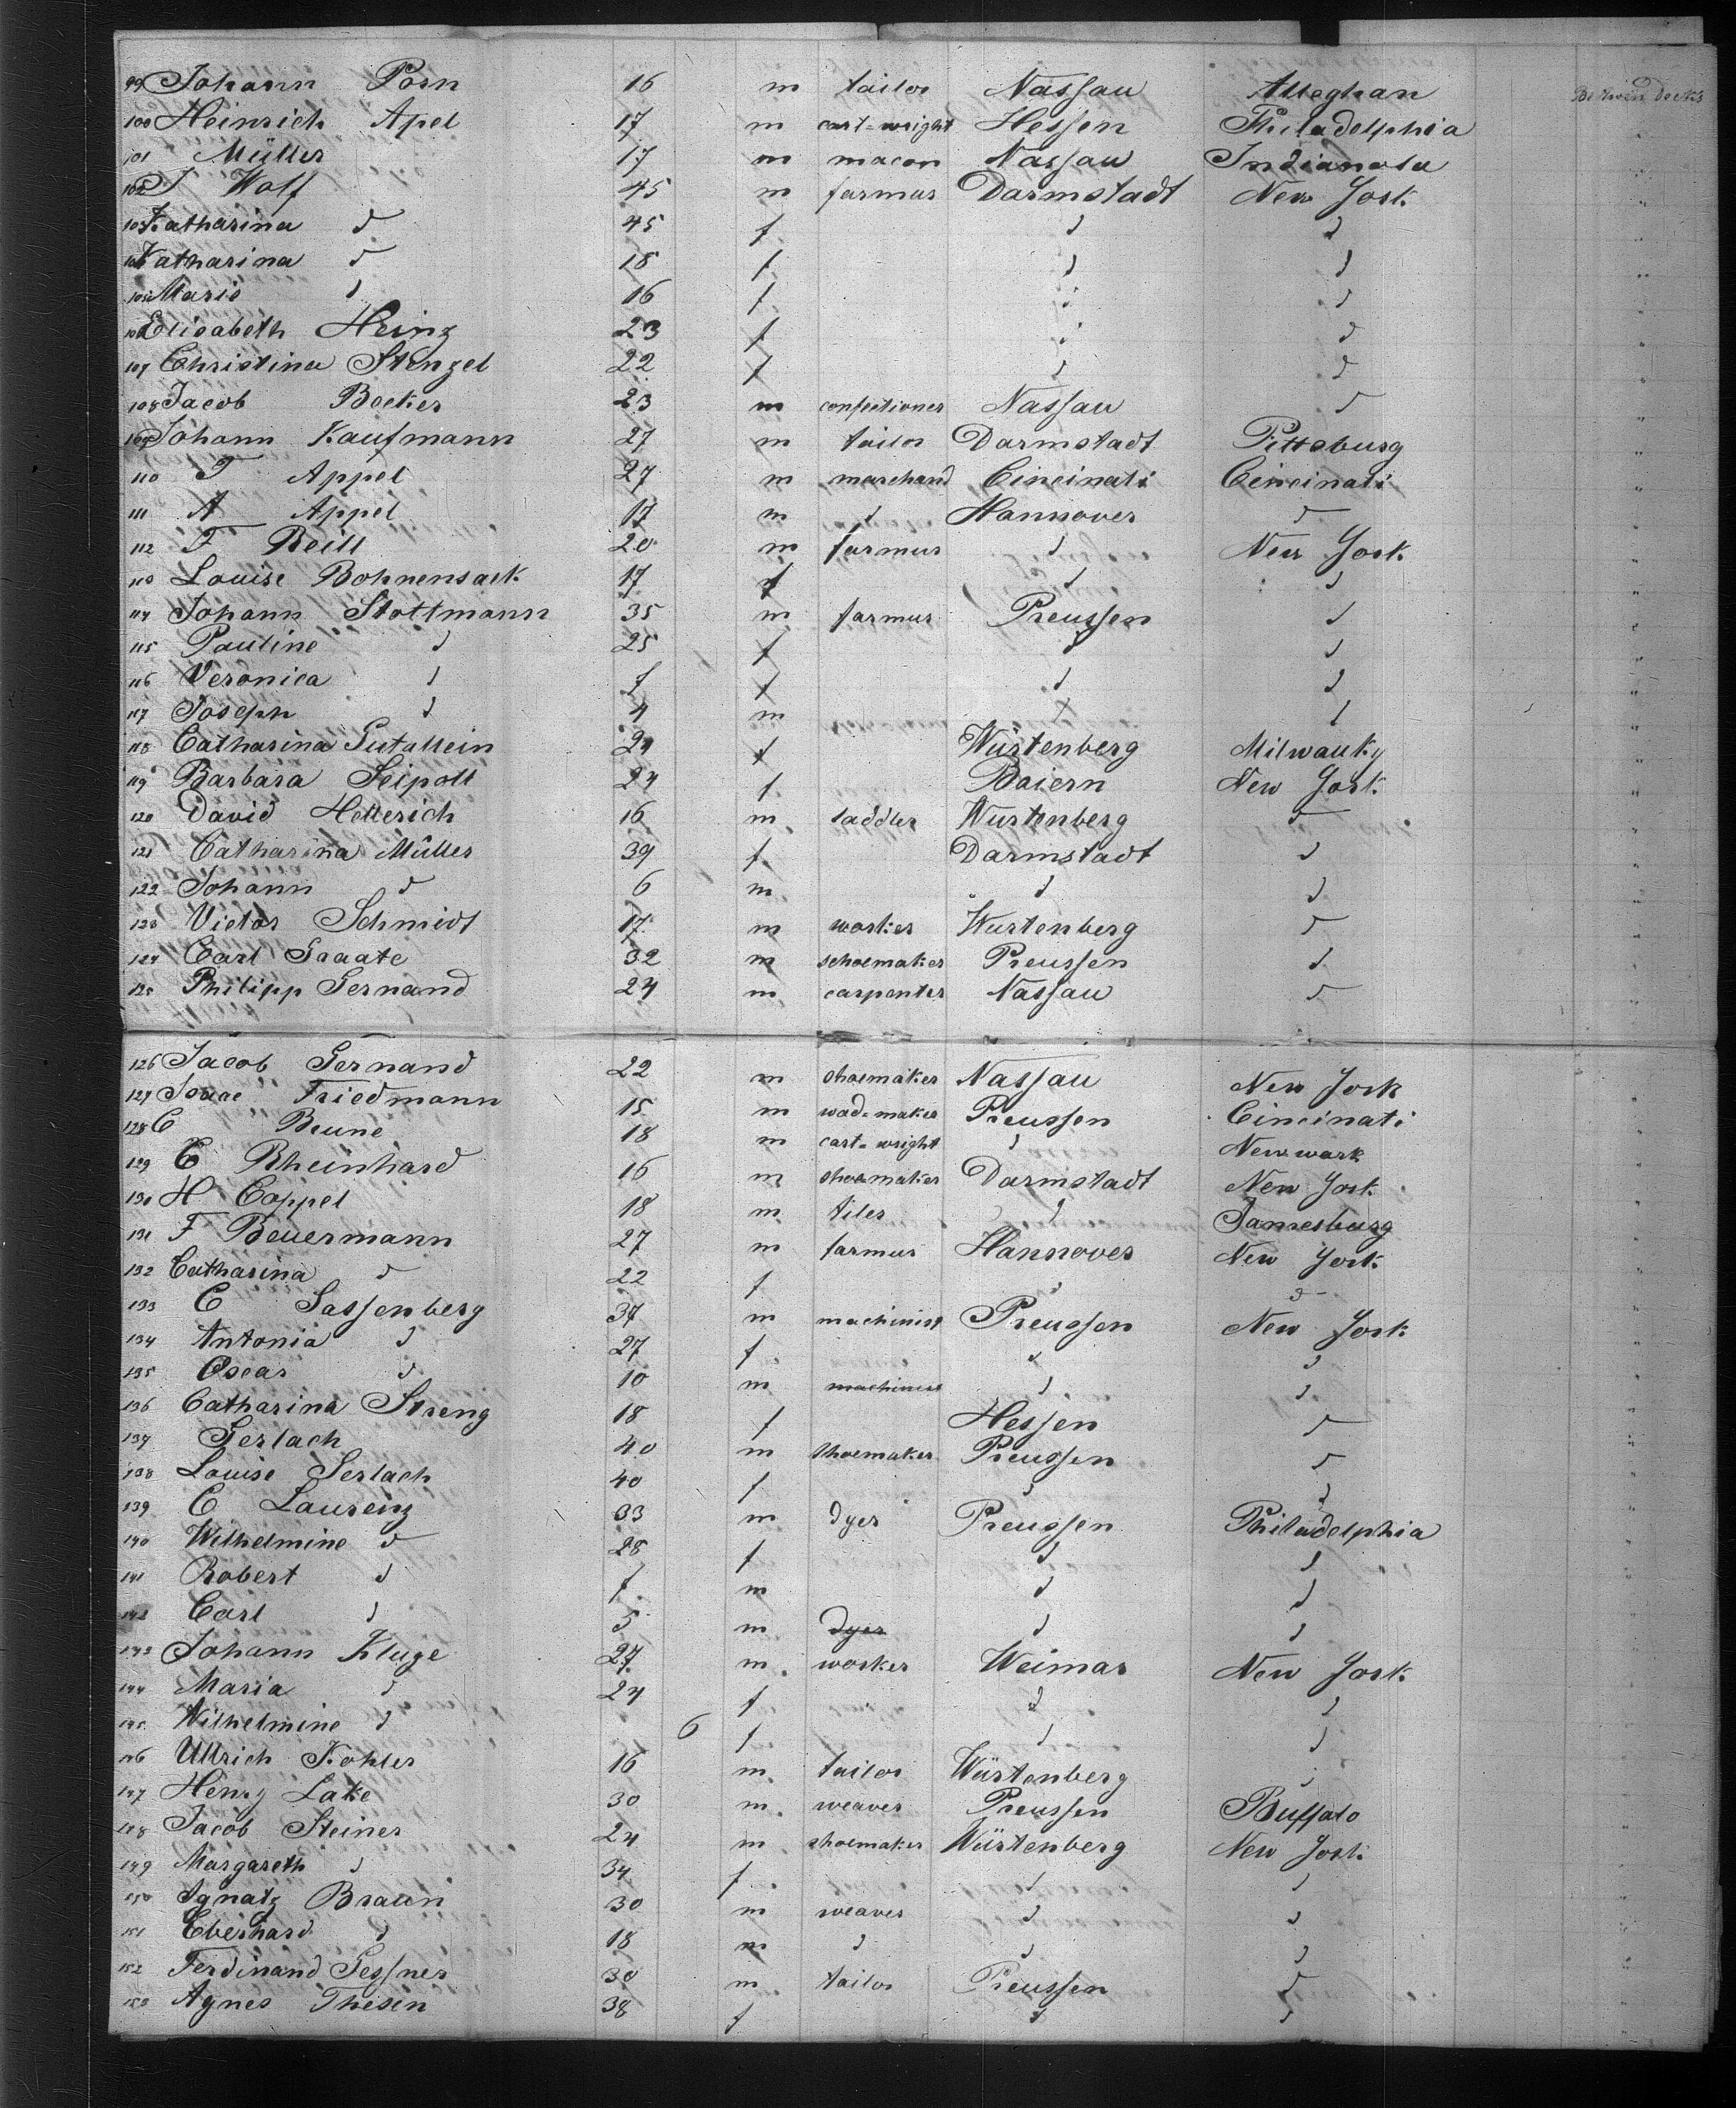 99 Johann Porn 16 m tailor Nassau Alleghan Between decks
100 Heinrich Apel 17 m cart=wright Hessen Philadelphia "
101 Müller 17 m macon Nassau Indianola "
102 J Wolf 45 m farmer Darmstadt New York "
103 Katharina d 45 f d d "
104 Katharina d 18 f d d "
105 Marie d 16 f d d "
106 Elisabeth Heinz 23 f d d "
107 Christina Stenzel 22 f d d "
108 Jacob Becker 23 m confectioner Nassau d "
109 Johann Kaufmann 27 m tailor Darmstadt Pittsburg "
110 F Appel 27 m marchand Cincinati Cincinati "
111 A Appel 17 m d Hannover d "
112 F Beill 20 m farmer d New York "
113 Louise Bohnensack 17 f d d "
114 Johann Stottmann 35 m farmer Preussen d "
115 Pauline d 25 f d d "
116 Veronica d f d d "
117 Joseph d 4 m d "
118 Catharina 24 f Würtenberg Milwauky "
119 Barbara Seipolt 24 f Baiern New York "
120 David Hellerich 16 m saddler Wurtenberg d "
121 Catharina Müller 39 f Darmstadt d "
122 Johann d 6 m d d "
123 Victor Schmidt 17 m worker Wurtenberg d "
124 Carl Graate 32 m schoemaker Preussen d "
125 Philipp Gernand 24 m carpenter Nassau d "
126 Jacob Gernand 22 m shoemaker Nassau New York "
127 Isaac Friedmann 15 m wad=maker Preussen Cincinati "
128 C Beune 18 m cart=wright d Newwark "
129 C Rheinhard 16 m shoemaker Darmstadt New York "
130 H Coppel 18 m tiler d Jamesburg "
131 F Beuermann 27 m farmer Hannover New York "
132 Catharina d 22 f d d "
133 C Sassenberg 37 m machinist Preussen New York "
134 Antonia d 27 f d d "
135 Oscar d 10 m machinist d d "
136 Catharina Streng 18 f Hessen d "
137 Gerlach 40 m shoemaker Preussen d "
138 Louise Gerlach 40 f d d "
139 C Laurenz 33 m dyer Preussen Philadelphia "
140 Wilhelmine d 28 f d d "
141 Robert d m d d "
142 Carl d 5 m dyer d d "
143 Johann Kluge 27 m worker Weimar New York "
144 Maria d 24 f d d "
145 Wilhelmine d 6 f d d "
146 Ullrich Kohler 16 m tailor Würtenberg d "
147 Henry Lake 30 m weaver Preussen Buffalo "
148 Jacob Steiner 24 m shoemaker Würtenberg New York "
149 Margareth d 34 f d d "
150 Ignatz Braun 30 m weaver d d "
151 Eberhard d 18 m d d d "
152 Ferdinand Gessner 30 m tailor Preussen d "
153 Agnes Thesen 38 f d d "